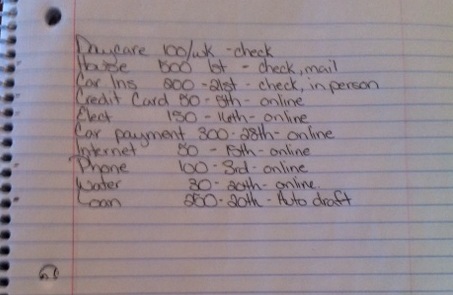 Daycare 100/wk - check
House 500 1st - check, mail
Car Ins 200 - 21st - check, in person
Credit Card 50 - 5th - online
Elect 150 - 16th - online
Car payment 300 - 28th - online
Internet 50 - 15th - online
Phone 100 - 3rd - online
Water 30 - 20th - online
Loan 250 - 20th - Auto draft